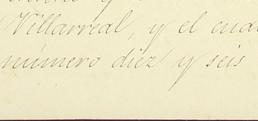 Villarreal, y el cual
número diez y seis